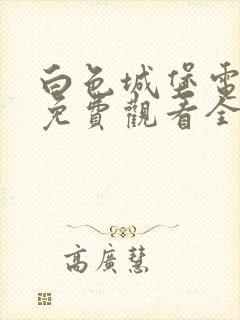 白色城堡電
免費觀看全
高廣慧